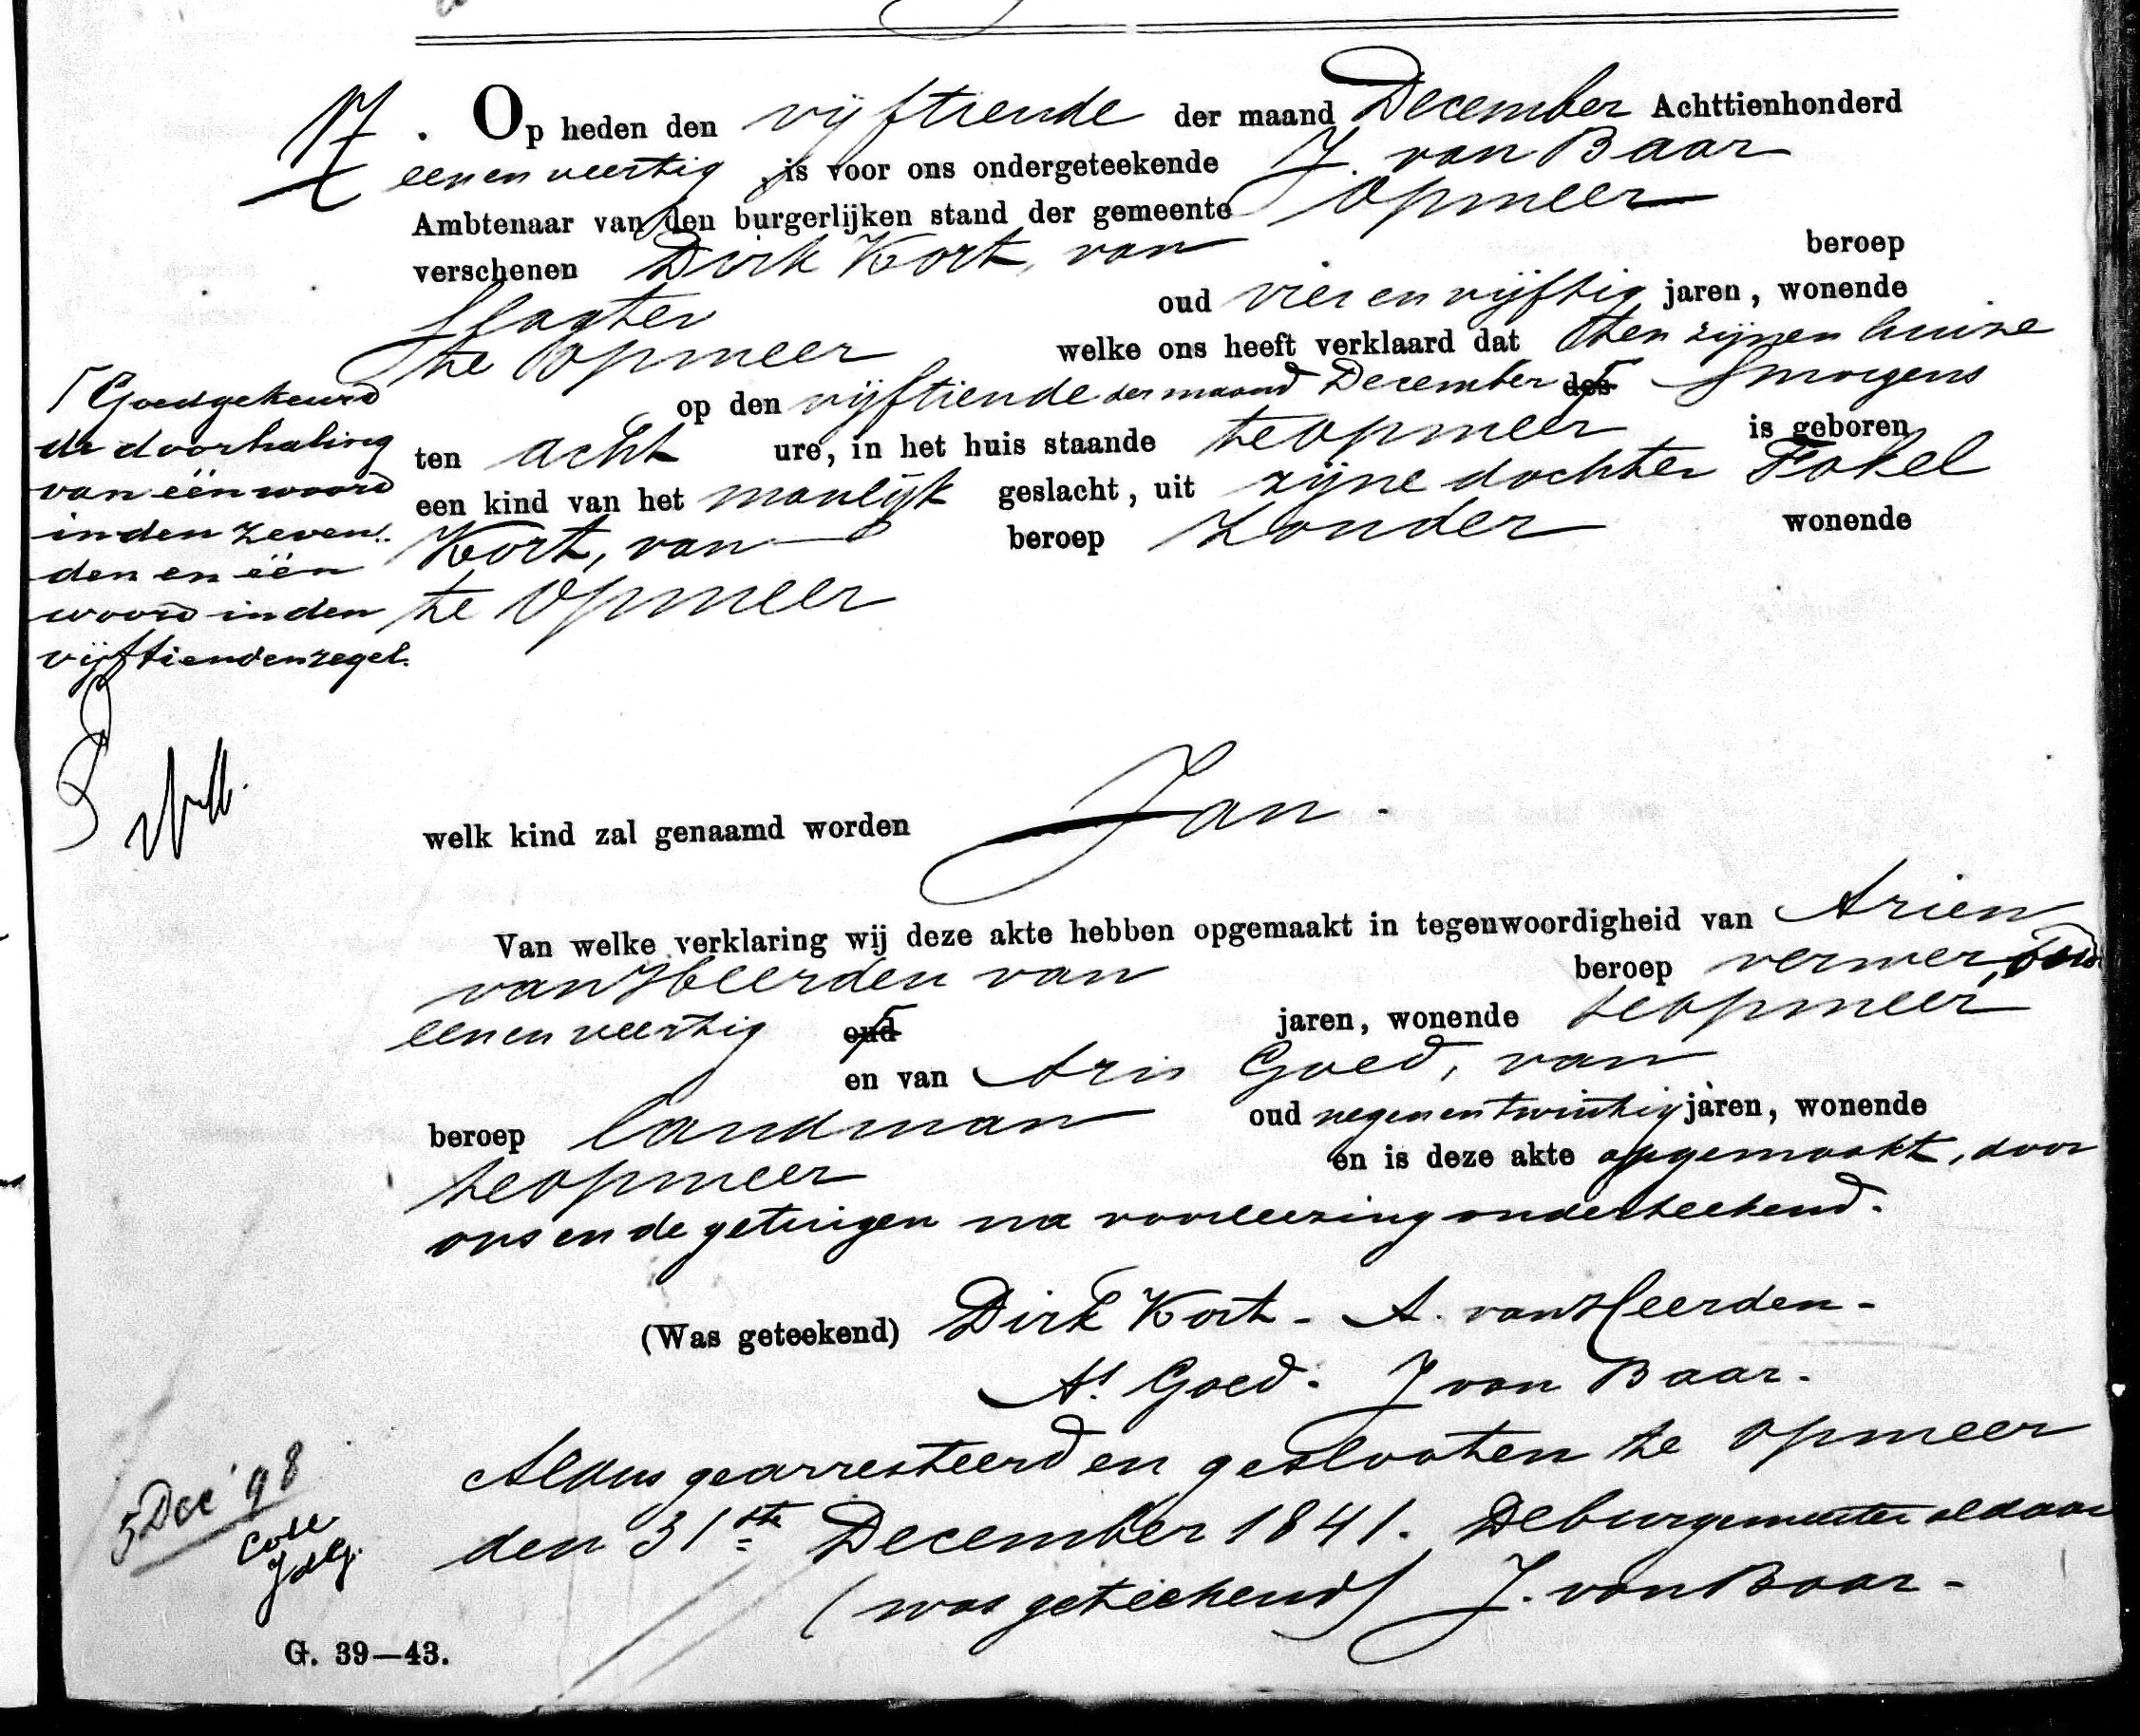 17. Op heden den vijftiende der maand December Achttienhonderd
eenenveertig is voor ons ondergeteekende J. van Baar
Ambtenaar van den burgerlijken stand der gemeente Opmeer
verschenen Dirk Kort, van beroep
slagter oud vierenvijftig jaren, wonende
te Opmeer welke ons heeft verklaard dat ten zijnen huize
op den vijftiende der maand December des smorgens
ten acht ure, in het huis staande te Opmeer is geboren
een kind van het manlijk geslacht, uit zijne dochter Fokel
Kort, van beroep zonder wonende
te Opmeer
Goedgekeurd
de doorhaling
van één woord
in den zeven-
den en één
woord in den
vijftienden regel.
welk kind zal genaamd worden Jan.
Van welke verklaring wij deze akte hebben opgemaakt in tegenwoordigheid van Arien
van Heerden van beroep verwer, oud
eenenveertig oud jaren, wonende te Opmeer
en van Aris Goed, van
beroep landman oud negenentwintig jaren, wonende
te Opmeer en is deze akte opgemaakt, door
ons en de getuigen na voorleezing onderteekend.
(Was geteekend) Dirk Kort - A. van Heerden -
As. Goed. J van Baar.
Aldus gearresteerd en geslooten te Opmeer
den 31ste December 1841. De burgemeester aldaar
(was geteekend) J. van Baar -
5 Dec '98
G. 39—43.